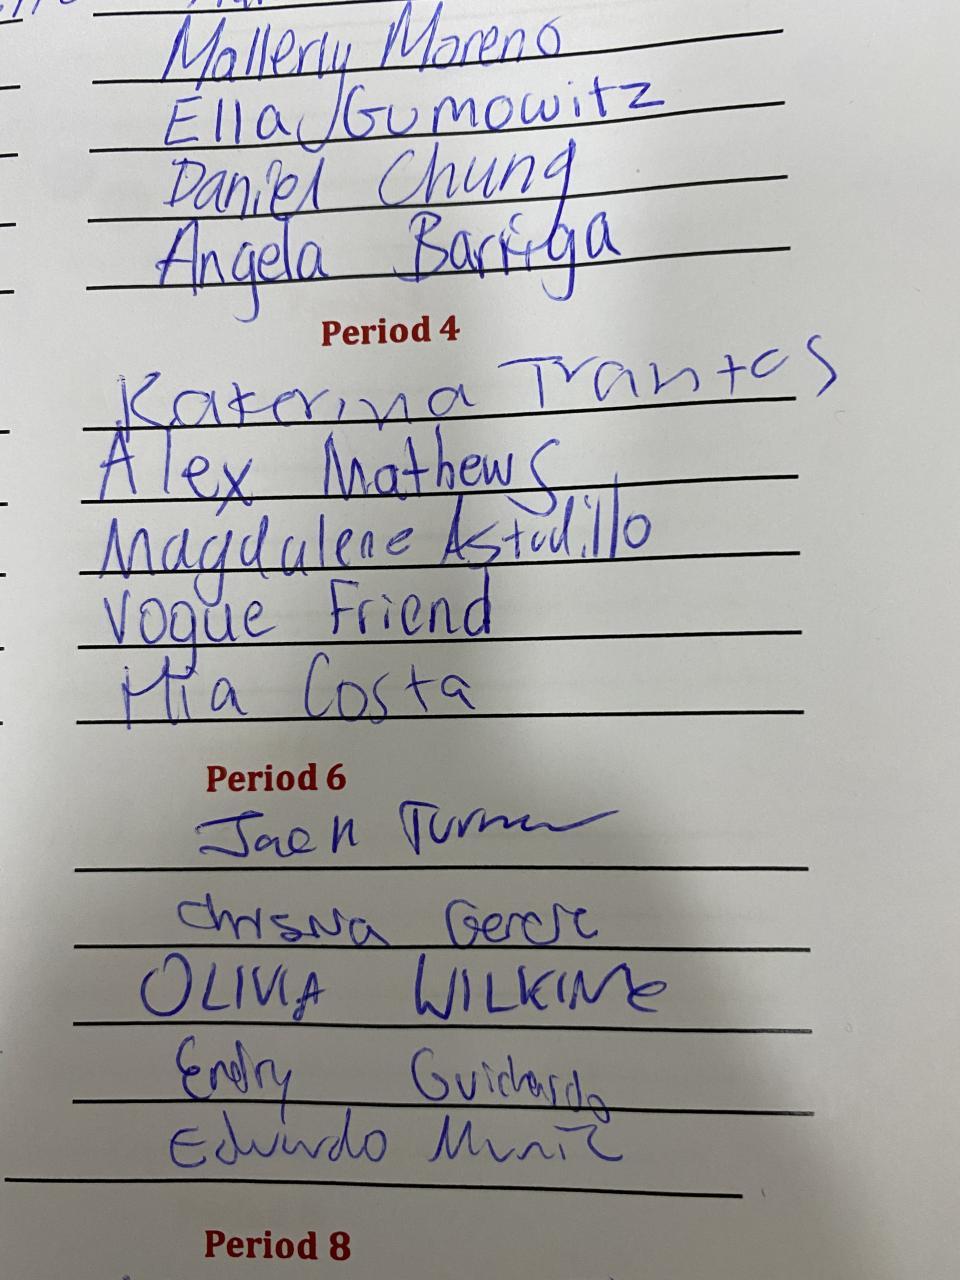 Mallerly Moreno
Ella Gumowitz
Daniel Chung
Angela Barriga
Period 4
Katerina Trantos
Alex Mathews
Magdalene Astudillo
Vogue Friend
Mia Costa
Period 6
Jack Turner
OLIVIA WILKINS
Endry Guichardo
Eduardo Muniz
Period 8